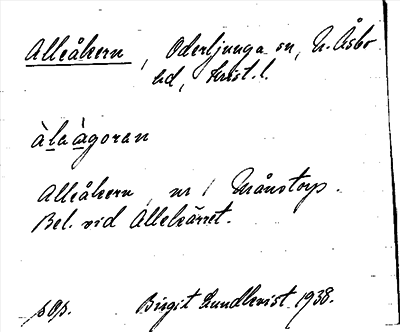 Alleåkern, Oderljunga sn, N. Åsbo
hd, Krist. l.
àlaàgoran
Alleåkern, nr 1 Månstorp.
Bel. vid Allekärret.
Birgit Lundkvist 1938.